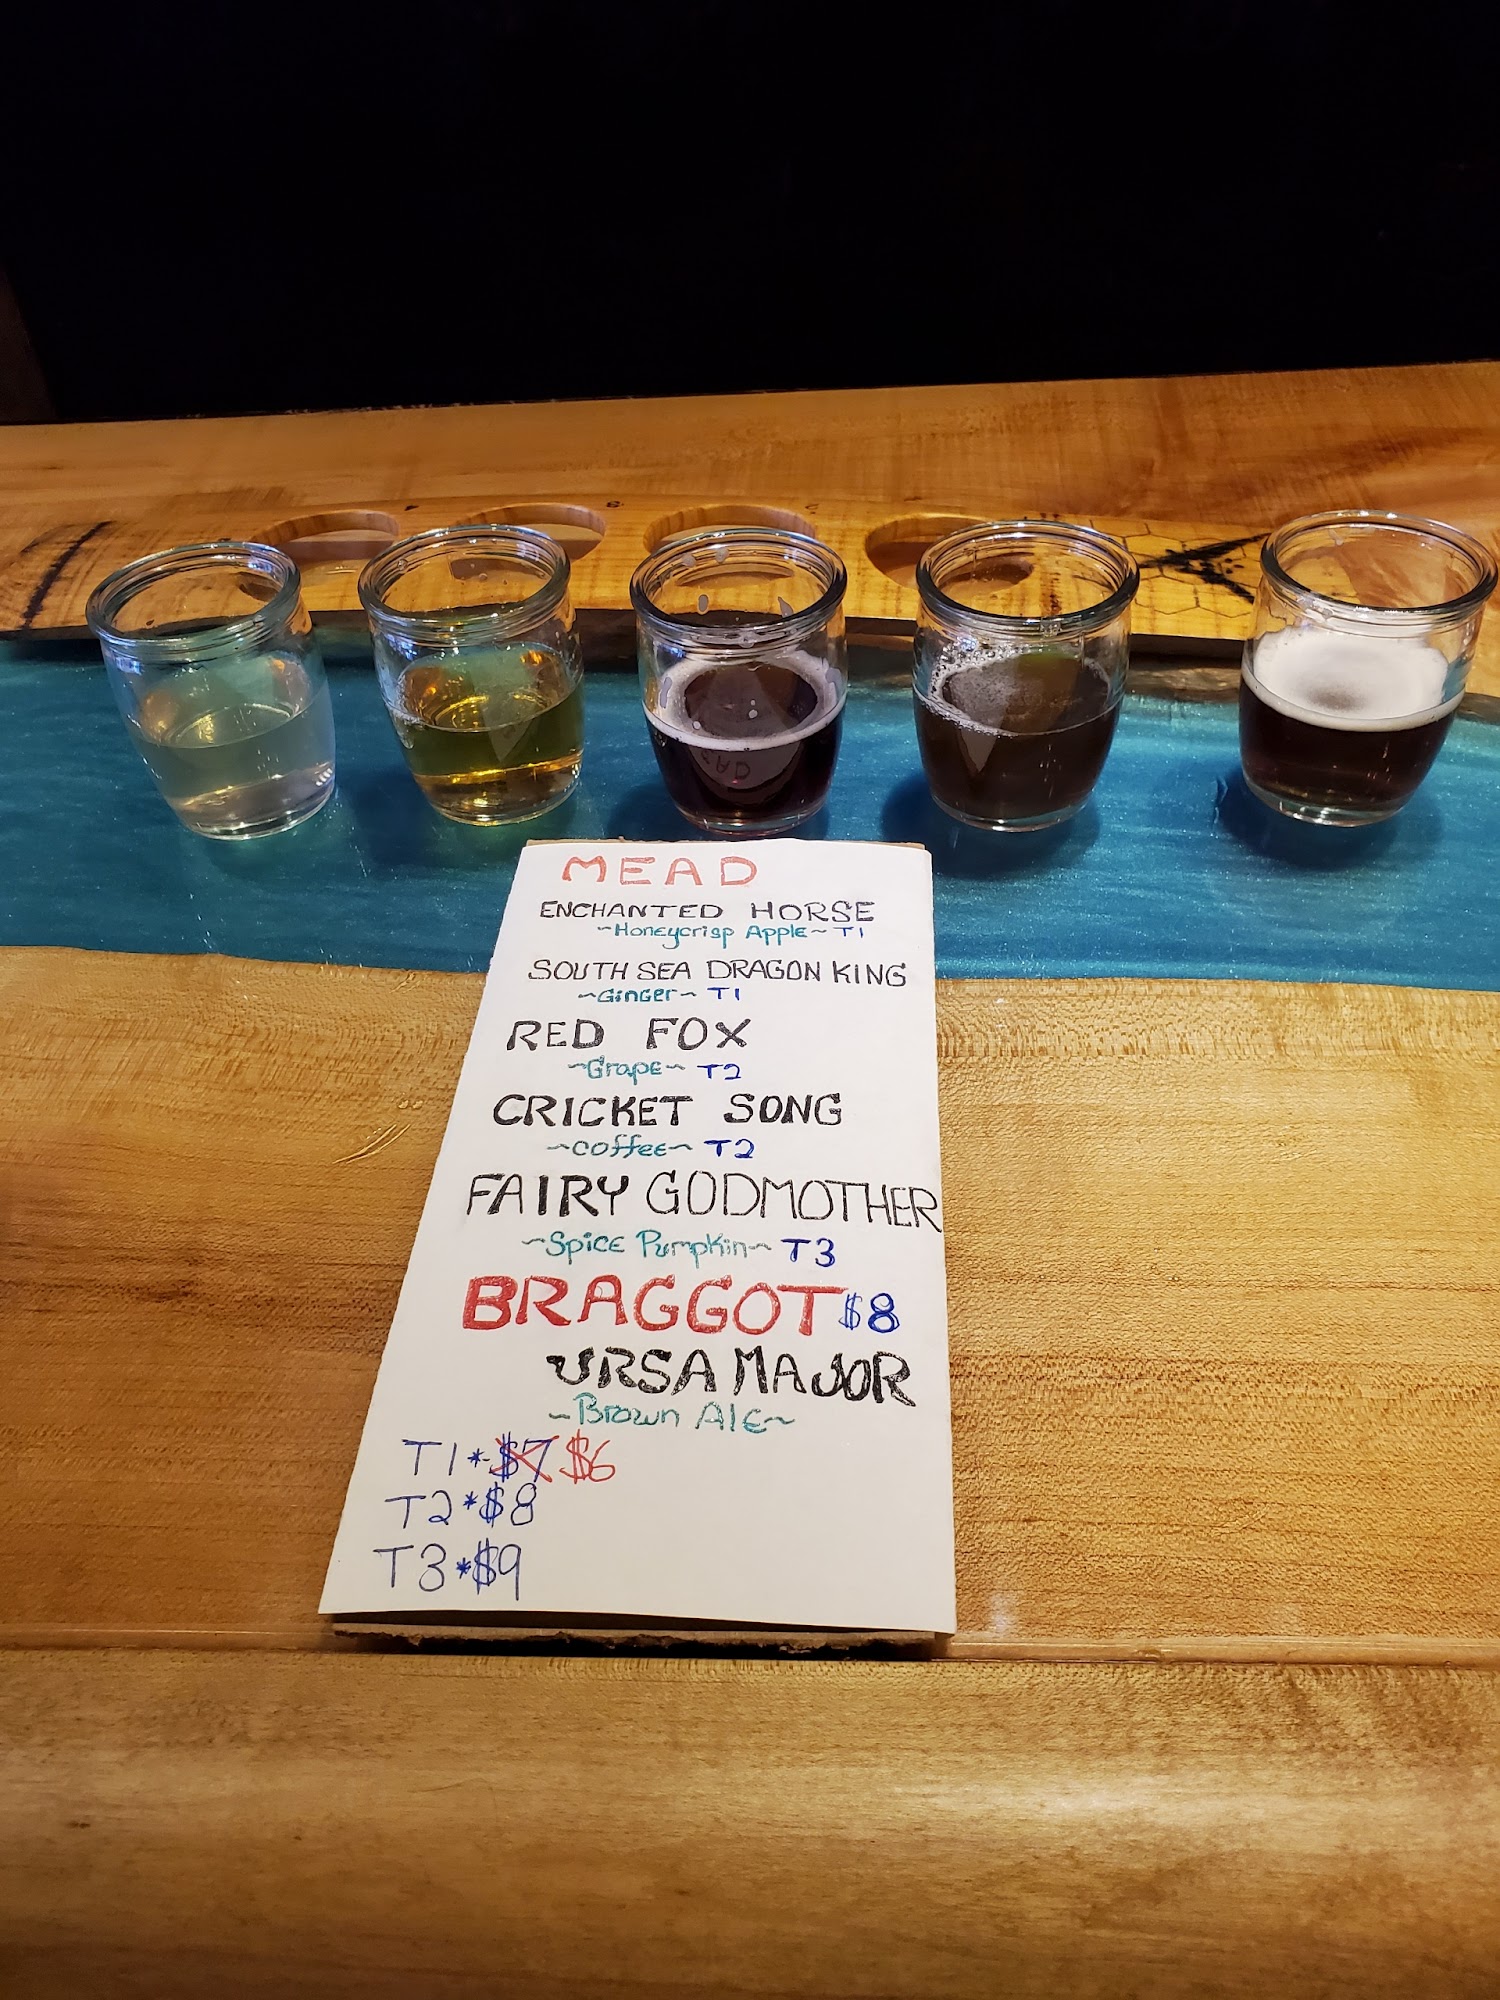 MEAD
ENCHANTED HORSE
~Honeycrisp Apple~ T1
SOUTH SEA DRAGON KING
~Ginger~ T1
RED FOX
~Grape~ T2
CRICKET SONG
~coffee~ T2
FAIRY GODMOTHER
~Spice Pumpkin~ T3
BRAGGOT $8
URSA MAJOR
~Brown Ale~
T1*$7 $6
T2*$8
T3*$9